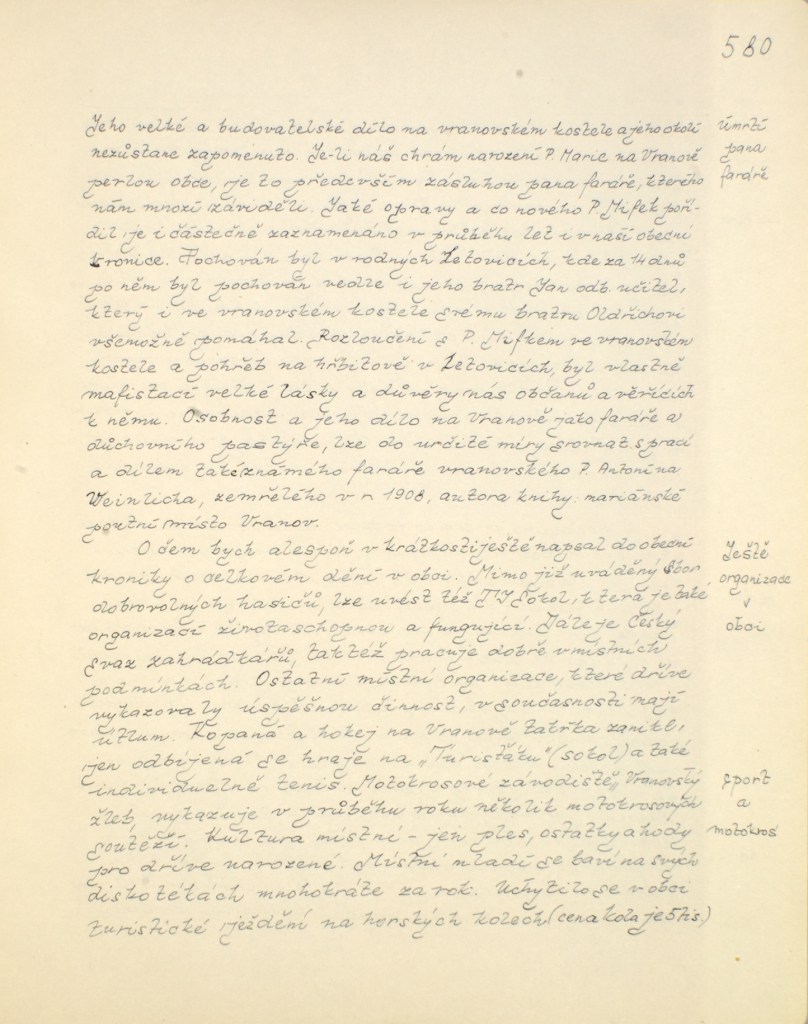 580
Jeho velké a budovatelské dílo na vranovském kostele a jeho okolí
nezůstane zapomenuto. Je-li náš chrám narození P. Marie na Vranově
perlou obce, je to především zásluhou pana faráře, kterého
nám mnozí záviděli. Jaké opravy a co nového P. Mifek poří-
dil je i částečně zaznamenáno v průběhu let i v naší obecní
kronice. Pochován byl v rodných Letovicích, kde za 14 dnů
po něm byl pochován vedle i jeho bratr Jan odb. učitel,
který i ve vranovském kostele svému bratru Oldřichovi
všemožně pomáhal. Rozloučení s P. Mifkem ve vranovském
kostele a pohřeb na hřbitově v Letovicích, byl vlastně
mafistací velké lásky a důvěry nás občanů a věřících
k němu. Osobnost a jeho dílo na Vranově jako faráře a
důchovního pastýře, lze do určité míry srovnat s prací
a dílem také známého faráře vranovského P. Antonína
Weinlicha, zemřelého v r. 1908, autora knihy: mariánské
poutní místo Vranov.
Úmrtí
pana
faráře
O čem bych alespoň v krátkosti ještě napsal do obecní
kroniky o celkovém dění v obci. Mimo již uváděný Sbor
dobrovolných hasičů, lze uvést též TJ Sokol, která je také
organizací životaschopnou a fungující. Dále je Český
svaz zahrádkářů, taktéž pracuje dobře v místních
podmínkách. Ostatní místní organizace, které dříve
vykazovaly úspěšnou činnost, v současnosti mají
útlum. Kopaná a hokej na Vranově takřka zanikl,
jen odbíjená se hraje na „Turisťáku" (sokol) a také
individuelně tenis. Motokrosové závodiště „Vranovský
žleb, vykazuje v průběhu roku několik motokrosových
soutěží. Kultura místní - jen ples, ostatky a hody
pro dříve narozené. Místní mladí se baví na svých
diskotékách mnohokráte za rok. Uchytilo se v obci
turistické ježdění na horských kolech (cena kola je 5 tis.)
Ještě
organizace
v
obci
sport
a
motokros